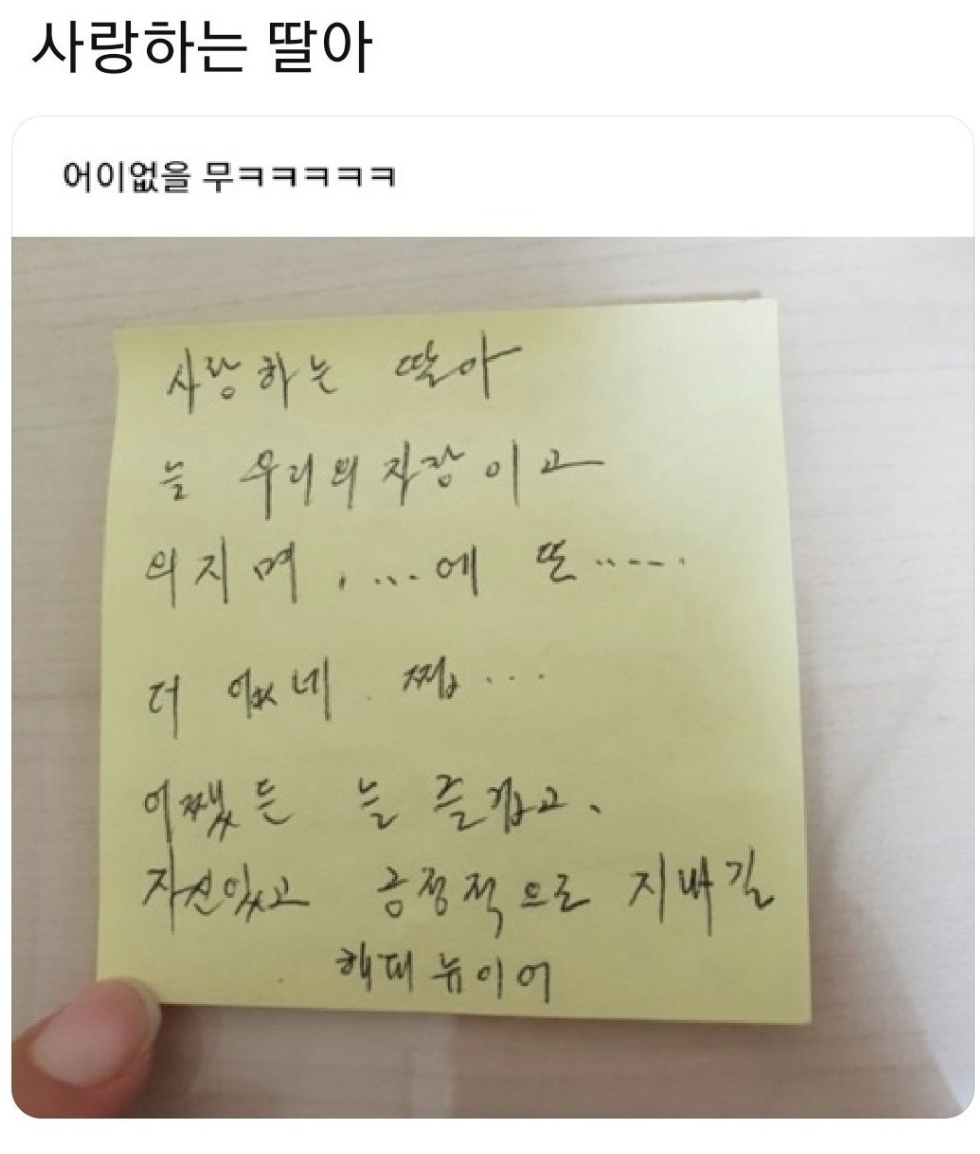 사랑하는 딸아
어이없을 무ㅋㅋㅋㅋㅋ
사랑하는 딸아
늘 우리의 자랑이고
의지며 , ...에 또 ......
더 없네. 쩝...
어쨌든 늘 즐겁고、
자신있고 긍정적으로 지내길
해피 뉴이어